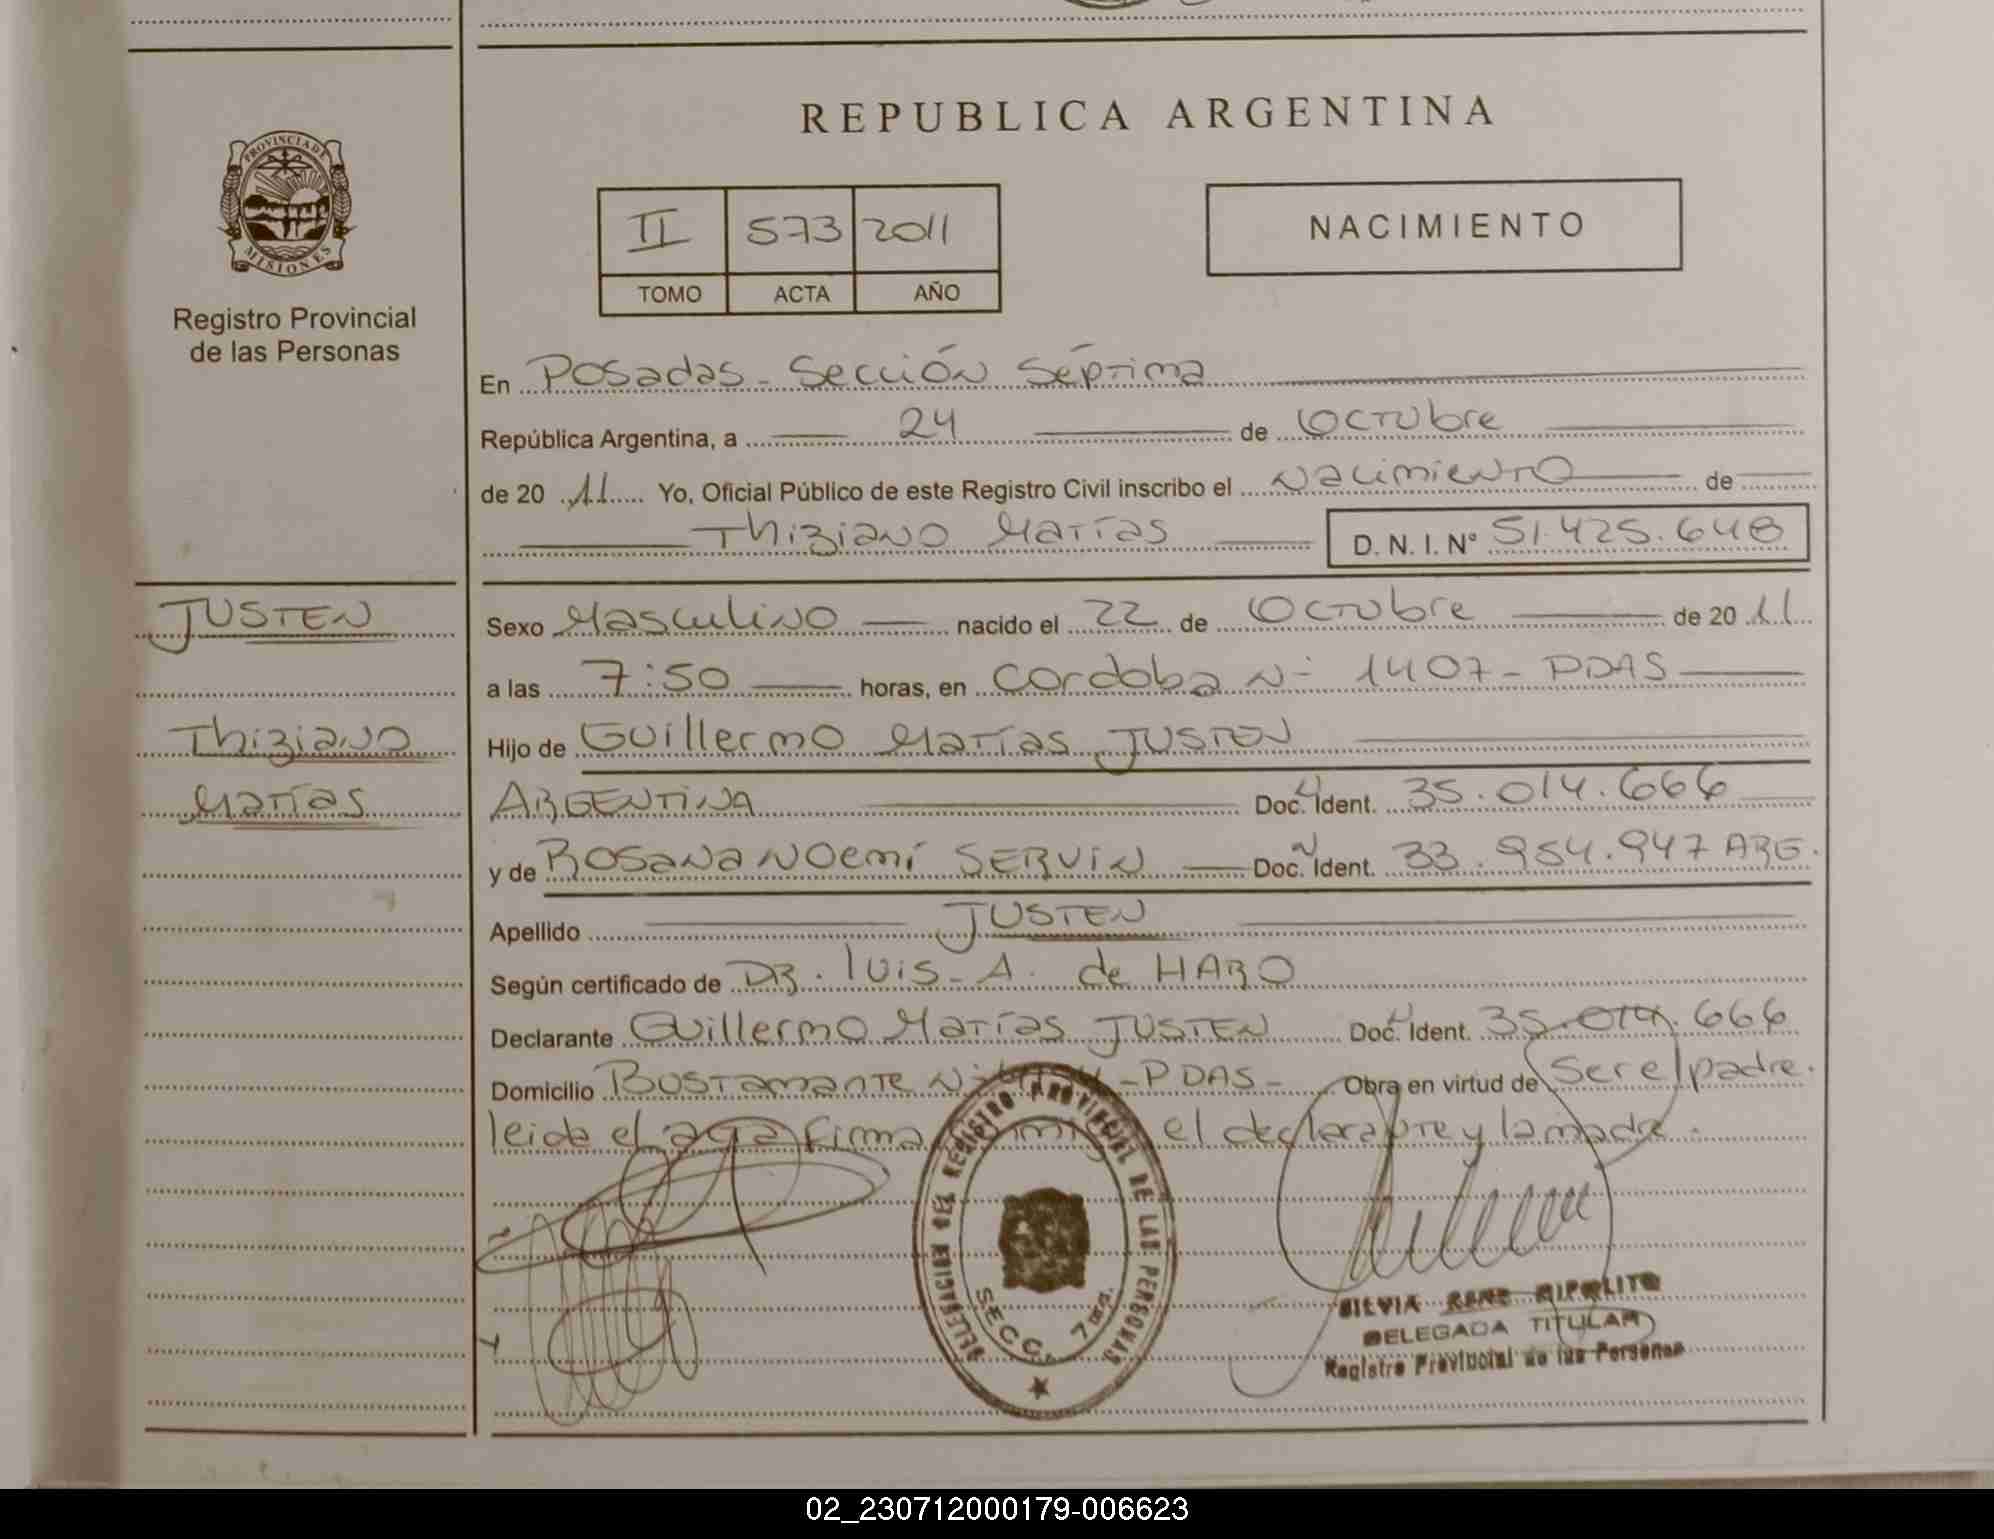 REPUBLICA ARGENTINA
PROVINCIA DE
MISIONES
Registro Provincial
de las Personas
II 573 2011
TOMO ACTA AÑO
NACIMIENTO
En Posadas - Sección Séptima
República Argentina, a 24 de Octubre
de 20 11 Yo, Oficial Público de este Registro Civil inscribo el Nacimiento de
Thiziano Matías D. N. I. Nº 51.425.648
JUSTEN
Thiziano
Matías
Sexo Masculino nacido el 22 de Octubre de 20 11
a las 7:50 horas, en Cordoba Nº 1407 - PDAS
Hijo de Guillermo Matías JUSTEN
ARGENTINA Doc. Ident. 35.014.666
y de Rosana Noemí SERVIN Doc. Ident. 33.954.947 ARG.
Apellido JUSTEN
Según certificado de DR. Luis - A. de HARO
Declarante Guillermo Matías JUSTEN Doc. Ident. 35.014.666
Domicilio Bustamante Nº - PDAS - Obra en virtud de ser el padre.
leida el acta firma el declarante y la madre.
DELEGACION DEL REGISTRO PROVINCIAL DE LAS PERSONAS
SECC. 7ma.
SILVIA RENE HIPOLITO
DELEGADA TITULAR
Registro Provincial de las Personas
02_230712000179-006623